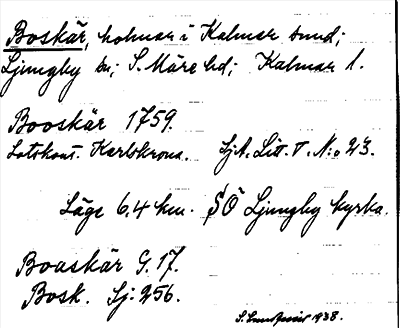 Boskär, holmar i Kalmar sund;
Ljungby sn; S. Möre hd; Kalmar l.
Booskär 1759.
Lotskont. Karlskrona. Sj.A. Litt. V. N:o 23.
Läge 6,4 km. SÖ Ljungby kyrka.
Boaskär G. 17.
Bosk. Sj: 256.
1938.